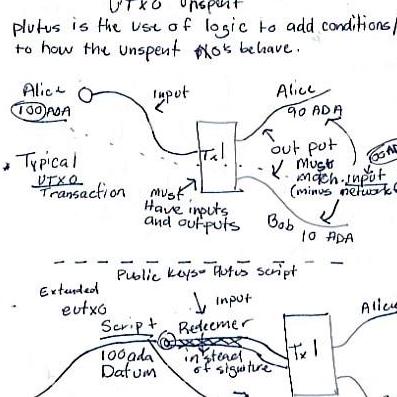 UTXO unspent
plutus is the use of logic to add conditions/
to how the unspent behave.
Alice
100 ADA
input
Alice
90 ADA
Tx1
out put
Must
match input
(minus network
Typical
UTXO
Transaction
Must
Have inputs
and outputs
Bob
10 ADA
Public keys= Plutus script
Extended
eutxo
input
Script
Redeemer
100ada
Datum
instead
of signature
Tx1
Alice